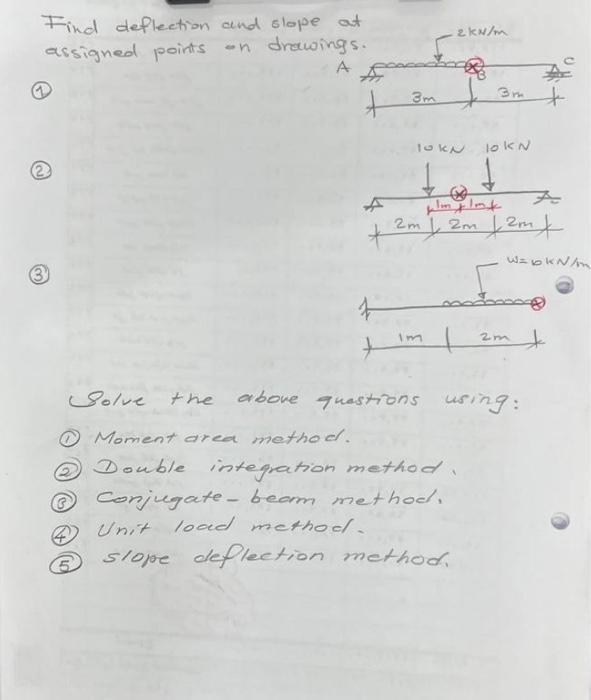 Find deflection and slope at
assigned points on drawings.
①
2 kN/m
A
B
C
3m
3m
②
10 kN 10 kN
1m 1m
2m 2m 2m
③
W=10 kN/m
1m 2m
Solve the above questions using:
① Moment area method.
② Double integration method.
③ Conjugate-beam method.
④ Unit load method.
⑤ slope deflection method.